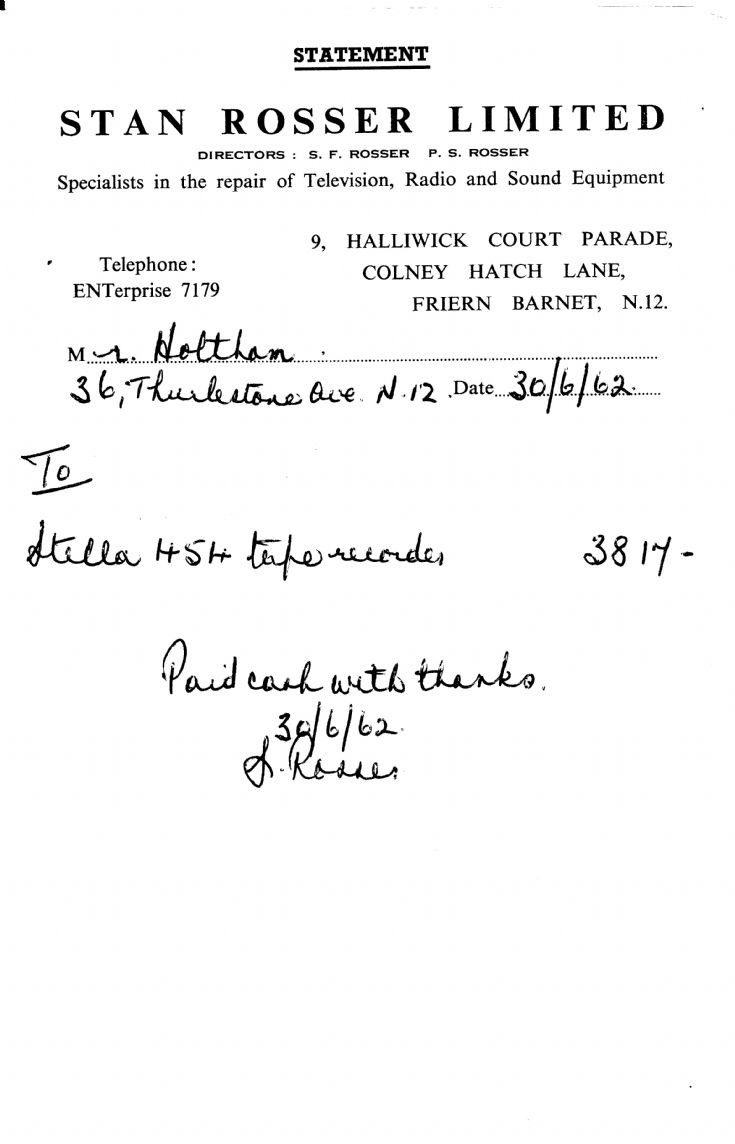 STATEMENT
STAN ROSSER LIMITED
DIRECTORS : S. F. ROSSER P. S. ROSSER
Specialists in the repair of Television, Radio and Sound Equipment
9, HALLIWICK COURT PARADE,
COLNEY HATCH LANE,
FRIERN BARNET, N.12.
Telephone :
ENTerprise 7179
Mr. Holtham
36, Thurlestone Ave. N.12 Date 30/6/62.
To
Stella 454 tape recorder 38 17 -
Paid cash with thanks.
30/6/62.
S. Rosser